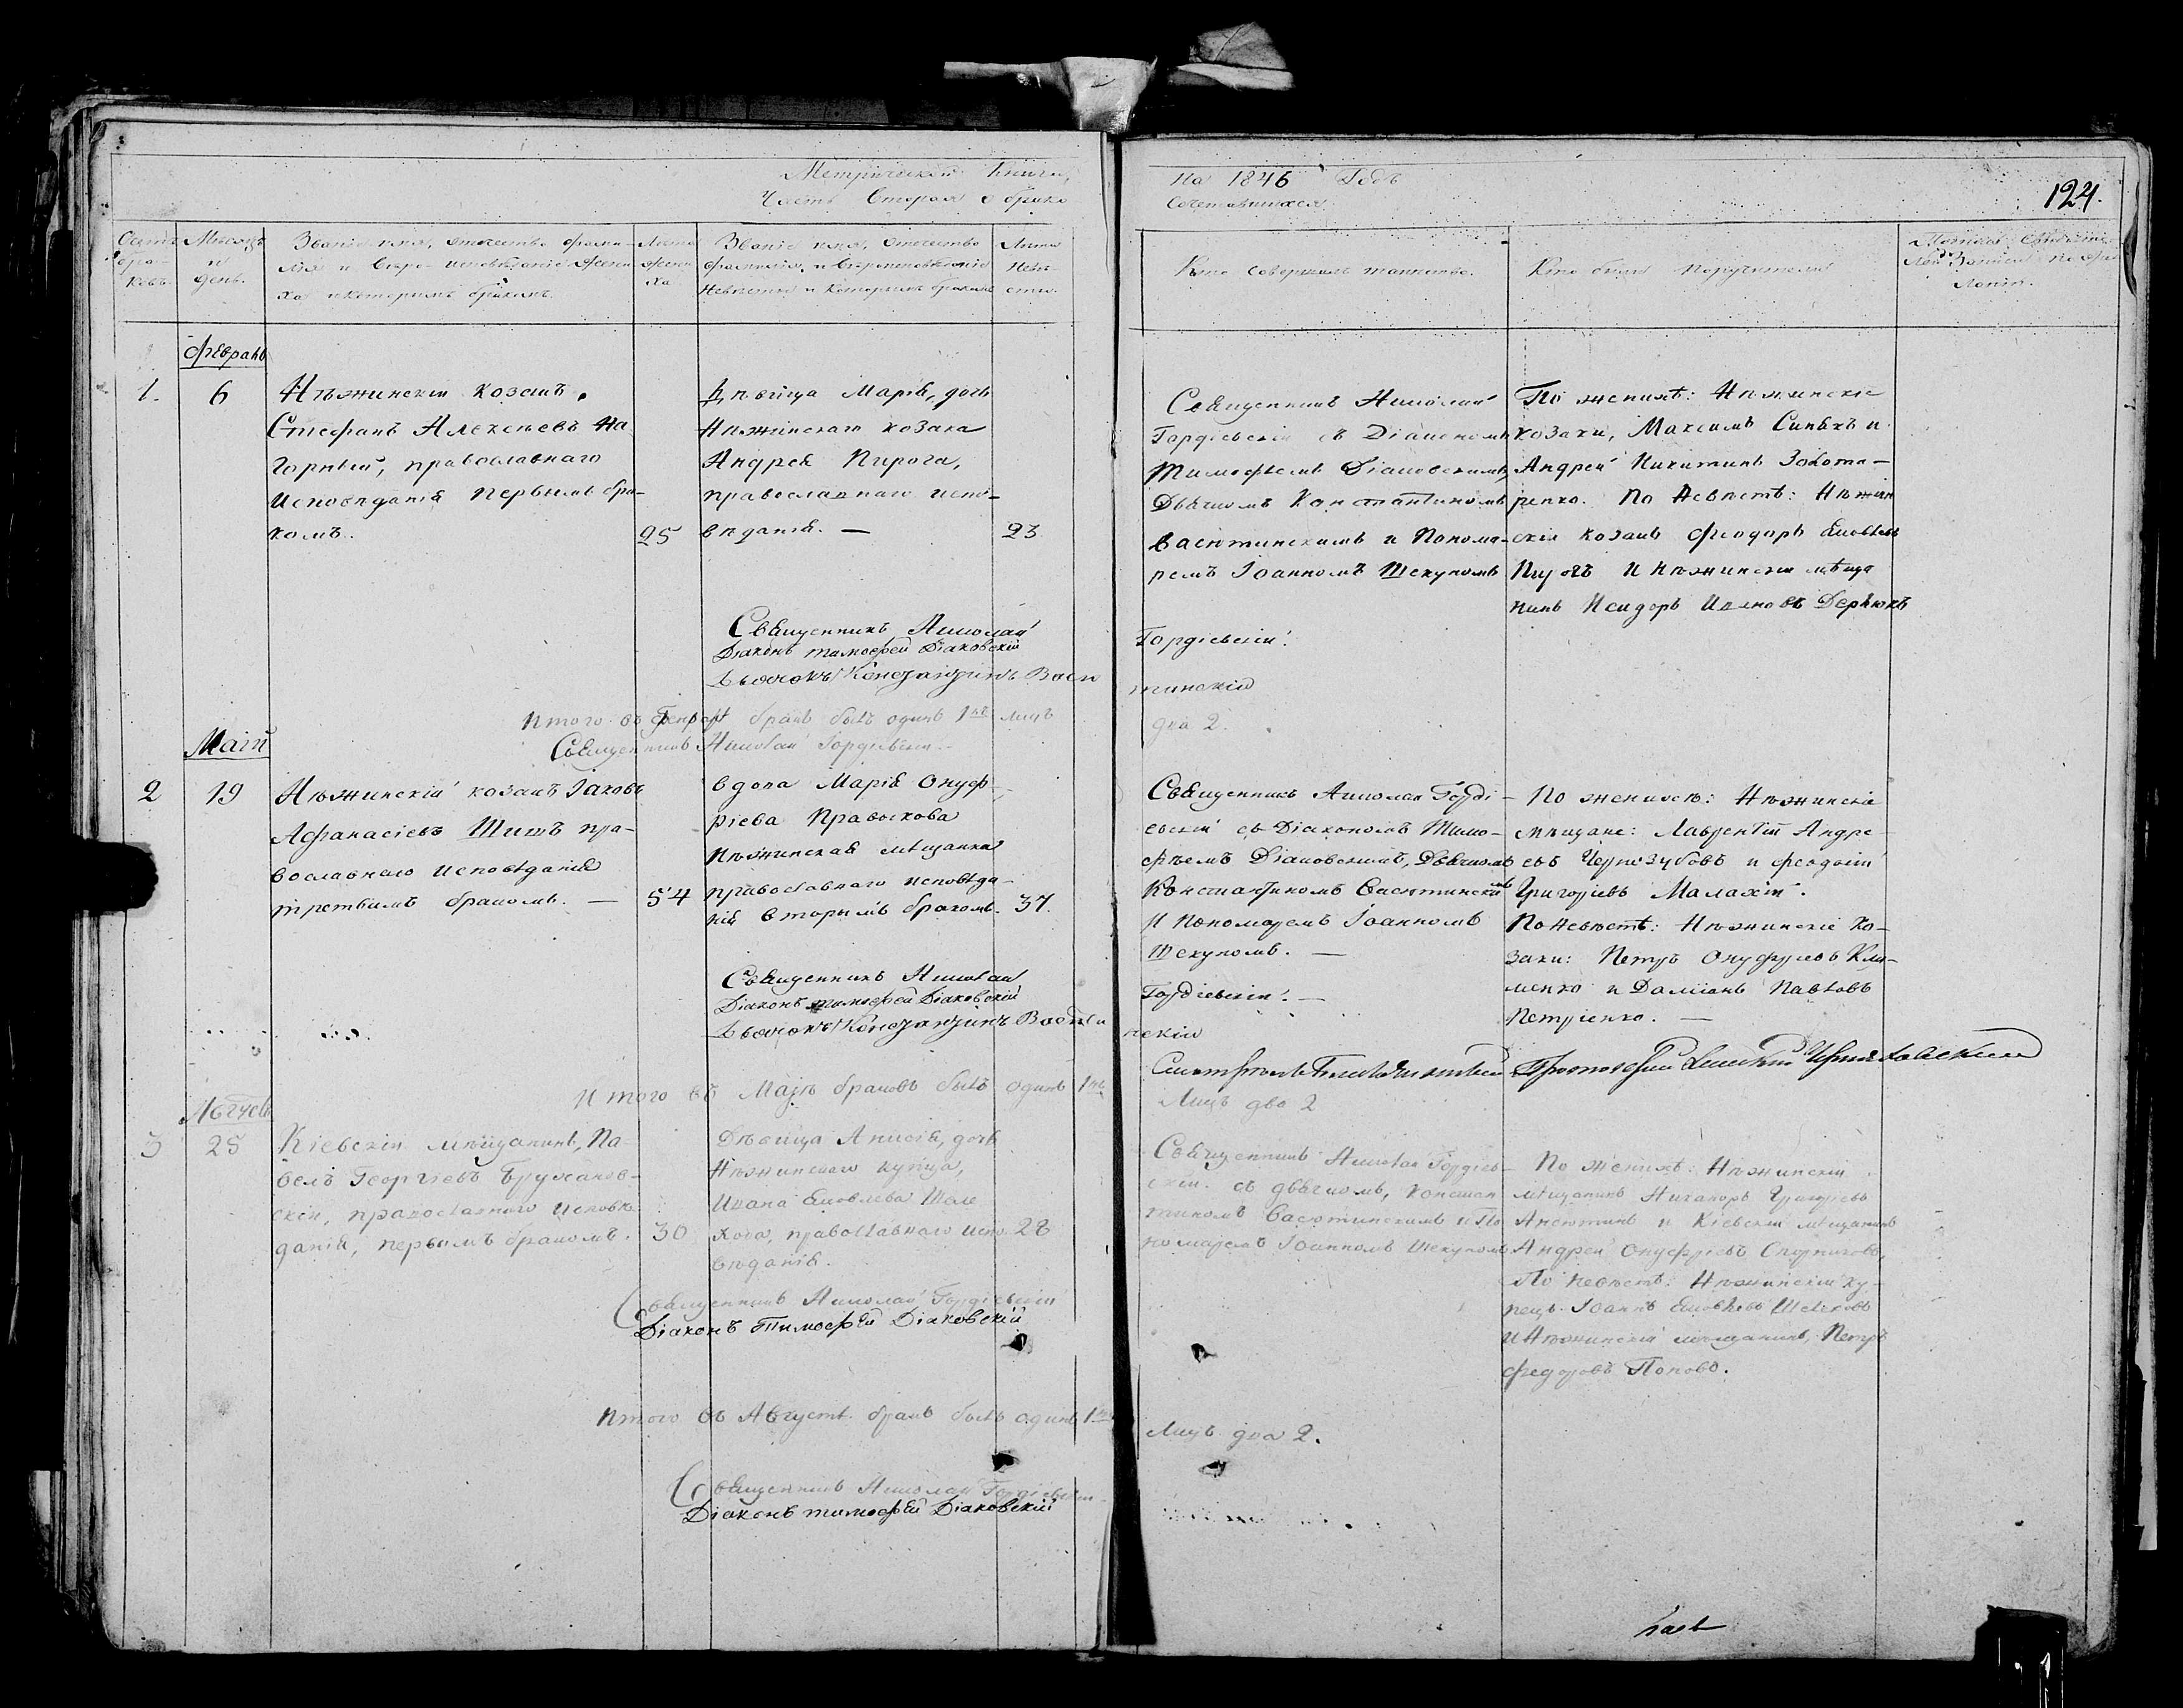 Метрической Книги,
Часть Вторая о брако
на 1846 Годъ
сочетавшихся.
124.
Счетъ бра-
ковъ.
Мѣсяцъ
и
день.
Званіе имя, отечество фами-
лія и вѣро-исповѣданіе жени-
ха и которымъ бракомъ.
Лѣта
жени-
ха
Званіе имя, отечество
фамилія, и вѣроисповѣданіе
невѣсты и которымъ бракомъ
Лѣта
невѣ-
сты.
Кто совершалъ таинство.
Кто были поручители
Февраль
1.
6
Нѣжинскій козакъ,
Стефанъ Алексѣевъ На
горный, православнаго
исповѣданія первымъ бра-
комъ.
25
Дѣвица Марія, дочь
Нѣжинскаго козака
Андрея Пирога,
православнаго испо-
вѣданія. —
23
Священникъ Николай
Гордіевскій съ Діакономъ
Тимофѣемъ Діаковскимъ,
Дьячкомъ Константиномъ
Васютинскимъ и Понома-
ремъ Іоанномъ Шекуномъ
По женихѣ: Нѣжинскіе
козаки, Максимъ Синякъ и
Андрей Никитинъ Золота-
ренко. По невѣстѣ: Нѣжин
скій козакъ Феодоръ Яковлевъ
Пирогъ и Нѣжинскій мѣща
нинъ Исидоръ Ивановъ Дерюкъ
Священникъ Николай Гордіевскій.
Діаконъ Тимофей Діаковскій
Дьячокъ Константинъ Васютинскій
Итого въ бракъ былъ одинъ 1нъ лицъ два 2.
Священникъ Николай Гордіевскій.
Маій
2
19
Нѣжинскій козакъ Іаковъ
Афанасіевъ Шитъ пра-
вославнаго исповѣданія
третьимъ бракомъ. —
54
вдова Марія Онуф-
ріева Правосхова
Нѣжинская мѣщанка
православнаго исповѣда-
нія вторымъ бракомъ.
37.
Священникъ Николай Горді-
евскій съ Діакономъ Тимо-
фѣемъ Діаковскимъ, Дьячкомъ
Константиномъ Васютинскимъ
и Пономаремъ Іоанномъ
Шекуномъ. —
По женихѣ: Нѣжинскіе
мѣщане: Лаврентій Андре
евъ Чернозубовъ и Феодосій
Григоріевъ Малахій.
По невѣстѣ: Нѣжинскіе ко-
заки: Петръ Онуфріевъ Кли-
менко и Даміанъ Павловъ
Петріенко. —
Священникъ Николай Гордіевскій. —
Діаконъ Тимофей Діаковскій
Дьячокъ Константинъ Васютинскій
Итого въ Маіѣ браковъ былъ одинъ 1нъ Лицъ два 2
Августъ
3
25
Кіевскій мѣщанинъ, Па-
велъ Георгіевъ Бруханов-
скій, православнаго исповѣ
данія, первымъ бракомъ.
30
Дѣвица Анисія, дочь
Нѣжинскаго купца,
Ивана Яковлева Шеле
хова, православнаго испо
вѣданія.
28
Священникъ Николай Гордіев-
скій съ дьячкомъ, Констан
тиномъ Васютинскимъ и По
номаремъ Іоанномъ Шекуномъ
По женихѣ: Нѣжинскій
мѣщанинъ Никаноръ Григоріевъ
Анютинъ и Кіевскій мѣщанинъ
Андрей Онуфріевъ
По невѣстѣ: Нѣжинскій ку-
пецъ Іоаннъ Яковлевъ Шелеховъ
и Нѣжинскій мѣщанинъ, Петръ
Федоровъ Поповъ.
Священникъ Николай Гордіевскій
Діаконъ Тимофей Діаковскій
Итого въ Августѣ бракъ былъ одинъ 1нъ Лицъ два 2.
Священникъ Николай Гордіевскій
Діаконъ Тимофей Діаковскій